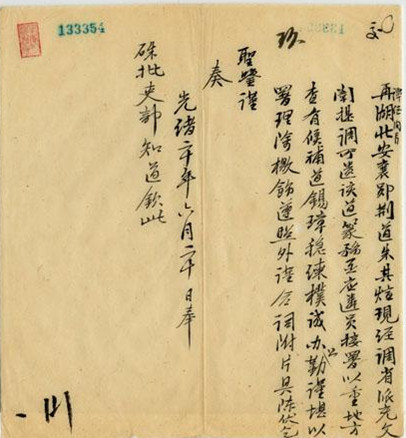 再湖北安襄鄖荊道朱其煊現經調省派充文
闈提調所遺該道篆務亟應遴員接署以重地方
查有候補道錫璋穩練樸誠办公勤謹堪以
署理除檄飭遵照外謹會同附片具陳伏乞
聖鑒謹
奏
光緒二十年六月二十日奉
硃批吏部知道欽此
133354